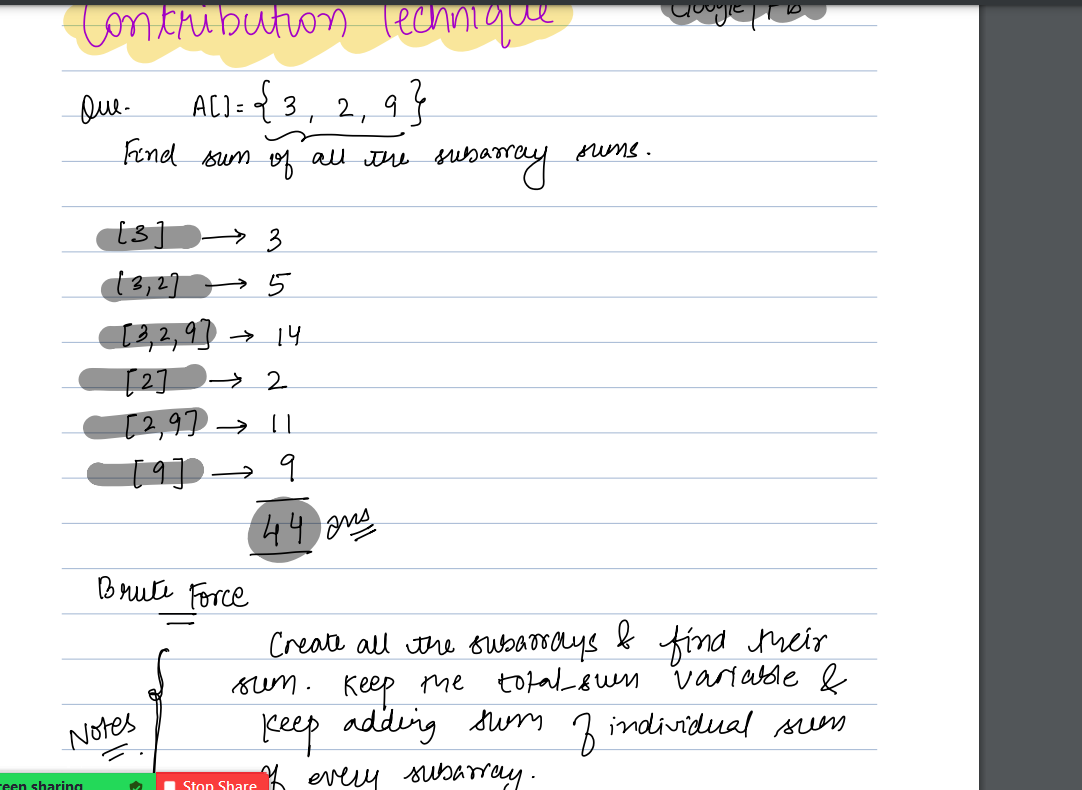 Contribution Technique
Google / FB
Que. A[] = { 3, 2, 9 }
Find sum of all the subarray sums.
[3] → 3
[3,2] → 5
[3,2,9] → 14
[2] → 2
[2,9] → 11
[9] → 9
44 ans
Brute Force
Create all the subarrays & find their
sum. Keep the total_sum variable &
Keep adding sum of individual sum
of every subarray.
Notes
reen sharing
Stop Share